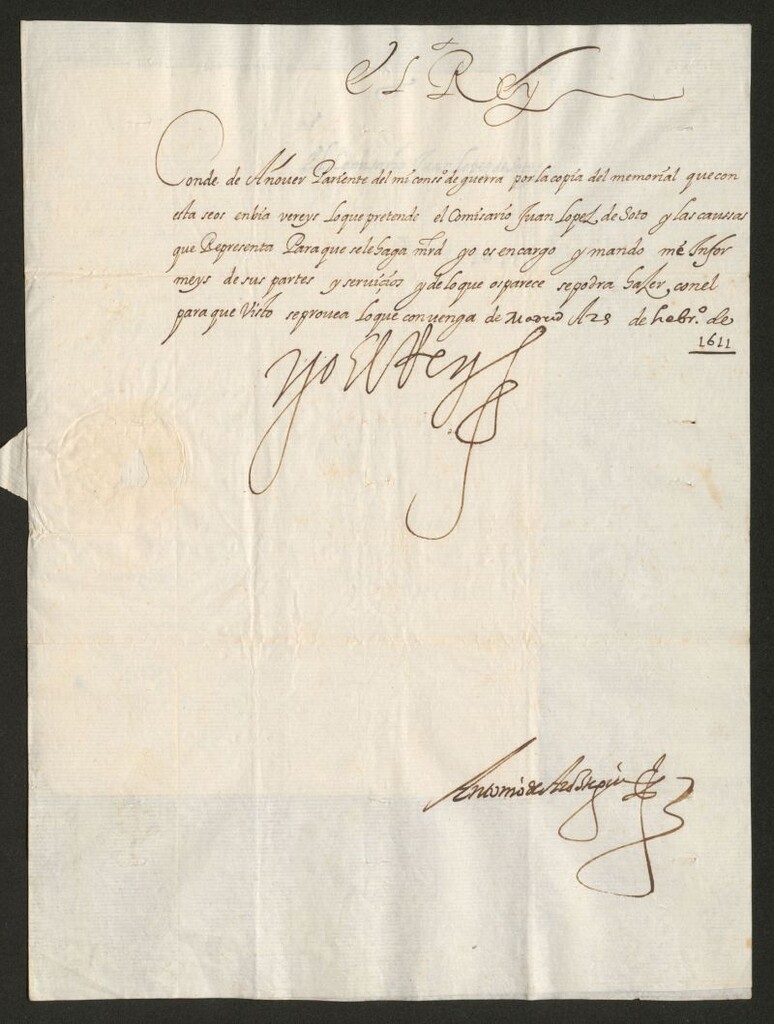 El Rey
Conde de Añover Pariente del mi consº de guerra por la copia del memorial que con
esta se os enbia vereys lo que pretende el Comisario Juan Lopez de Soto y las caussas
que Representa Para que se le haga mrd yo os encargo y mando me Infor
meys de sus partes y servicios y de lo que os parece se podra hazer con el
para que Visto se provea lo que convenga de Madrid A 28 de hebrº de
1611
Yo El Rey
Antonio de